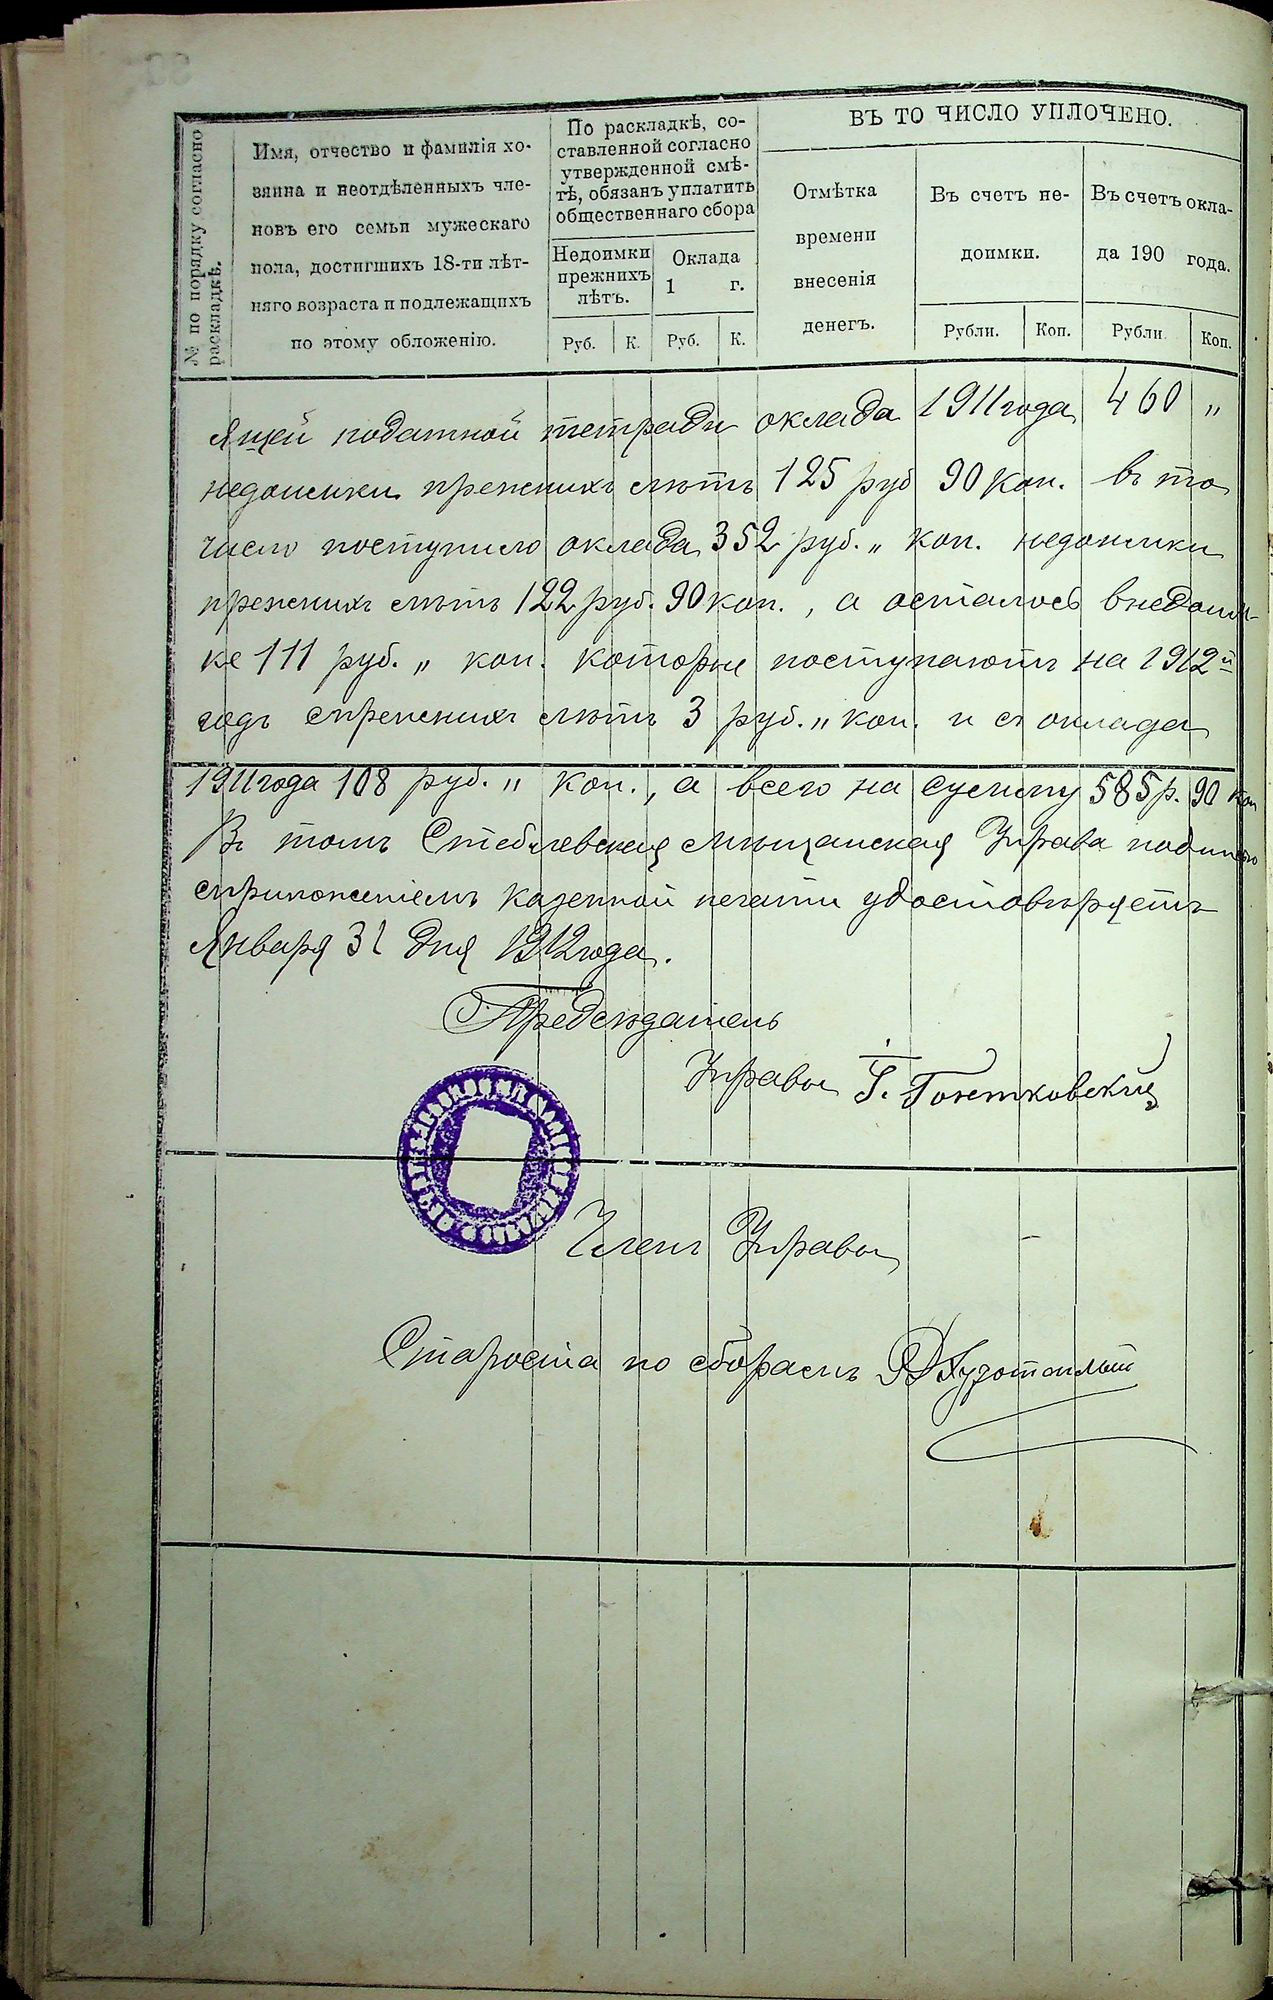 № по порядку согласно раскладкѣ.
Имя, отчество и фамилія хо-
зяина и неотдѣленныхъ чле-
новъ его семьи мужескаго
пола, достигшихъ 18-ти лѣт-
няго возраста и подлежащихъ
по этому обложенію.
По раскладкѣ, со-
ставленной согласно
утвержденной смѣ-
тѣ, обязанъ уплатить
общественнаго сбора
Недоимки
прежнихъ
лѣтъ.
Оклада
1 г.
Руб. К. Руб. К.
ВЪ ТО ЧИСЛО УПЛОЧЕНО.
Отмѣтка
времени
внесенія
денегъ.
Въ счетъ не-
доимки.
Въ счетъ окла-
да 190 года.
Рубли. Коп. Рубли. Коп.
ящей податной тетради оклада 1911 года 460 "
недоимки прежнихъ лѣтъ 125 руб 90 коп. въ то
число поступило оклада 352 руб. " коп. недоимки
прежнихъ лѣтъ 122 руб. 90 коп., а осталось внедоим-
ке 111 руб. " коп. которые поступаютъ на 1912 й
годъ спрежнихъ лѣтъ 3 руб. " коп. и съ оклада
1911 года 108 руб. " коп., а всего на сумму 585 р. 90 коп
Въ томъ Стеблевская мѣщанская Управа подписью
сприложеніемъ казенной печати удостовѣряетъ
Января 31 дня 1912 года.
Предсѣдатель
Управы Г. Гонтковскій
Членъ Управы
Староста по сборамъ